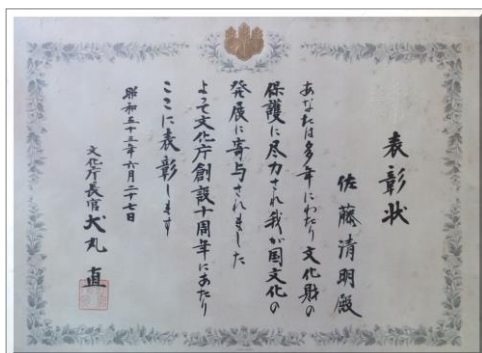 表彰状
佐藤清明殿
あなたは多年にわたり文化財の
保護に尽力され我が国文化の
発展に寄与されました
よって文化庁創設十周年にあたり
ここに表彰します
昭和五十三年六月二十七日
文化庁長官犬丸直